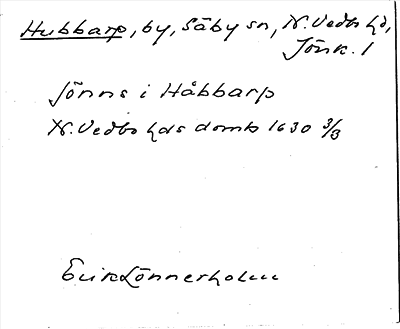 Hubbarp, by, Säby sn, N. Vedbo hd,
Jönk. l
Jöns i Håbbarp
N. Vedbo hds domb 1630 3/3
Erik Lönnerholm